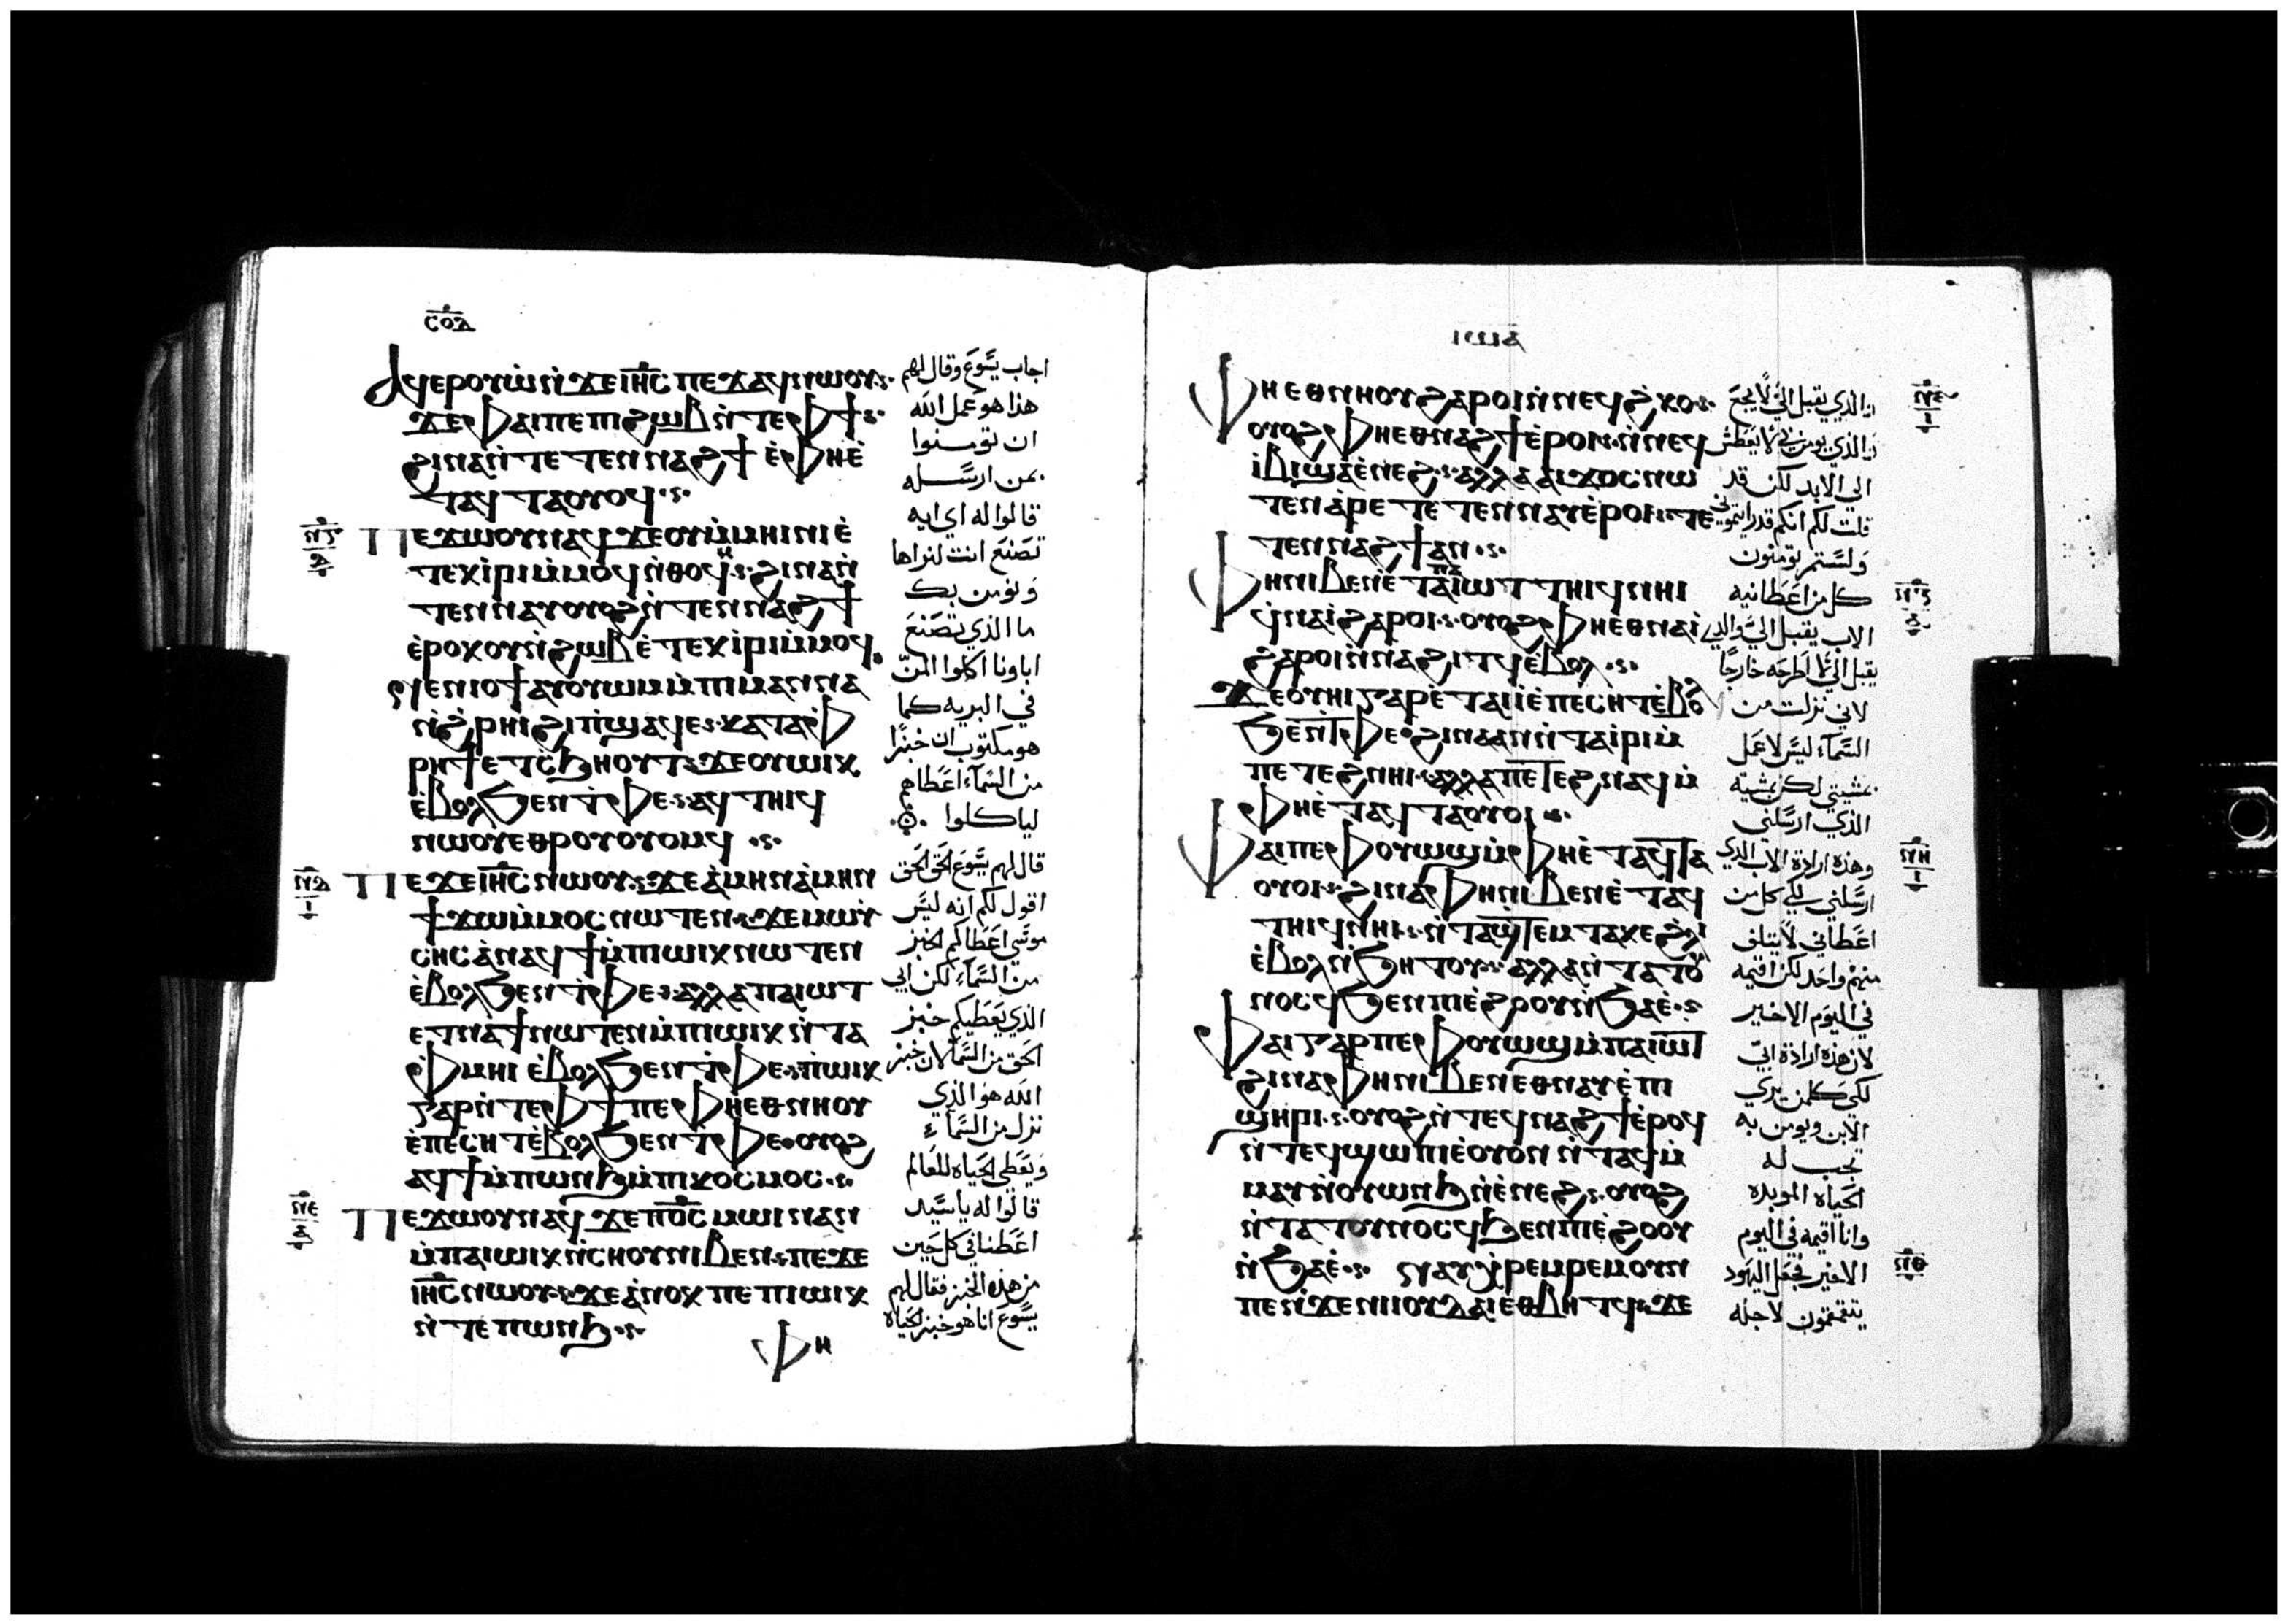 ⲥⲟⲇ
ⲁϥⲉⲣⲟⲩⲱ̀ⲛ̀ϫⲉⲓⲏⲥ ⲡⲉϫⲁϥⲛⲱⲟⲩ
ϫⲉⲫⲁⲓⲡⲉⲡⲓϩⲱⲃⲛ̀ⲧⲉⲫϯ
ϩⲓⲛⲁⲛ̀ⲧⲉⲧⲉⲛⲛⲁϩϯ ⲉ̀ⲫⲏⲉ̀
ⲧⲁϥⲧⲁⲟⲩⲟϥ
ⲡⲉϫⲱⲟⲩⲛⲁϥ ϫⲉⲟⲩⲙ̀ⲙⲏⲓⲛⲓⲉ̀
ⲧⲉⲕⲓ̀ⲣⲓⲙ̀ⲙⲟϥⲛ̀ⲑⲟⲕ ϩⲓⲛⲁⲛ̀
ⲧⲉⲛⲛⲁⲩⲟⲩⲟϩⲛ̀ⲧⲉⲛⲛⲁϩϯ
ⲉ̀ⲣⲟⲕⲟⲩⲛ̀ϩⲱⲃⲉ̀ⲧⲉⲕⲓ̀ⲣⲓⲙ̀ⲙⲟϥ
ⲛⲉⲛⲓⲟϯⲁⲩⲟⲩⲱⲙⲙ̀ⲡⲓⲙⲁⲛⲛⲁ
ⲛ̀ϩ̀ⲣⲏⲓϩⲓⲡ̀ϣⲁϥⲉ ⲕⲁⲧⲁⲫ̀
ⲣⲏϯⲉⲧⲥ̀ϧⲏⲟⲩⲧ ϫⲉⲟⲩⲱⲓⲕ
ⲉ̀ⲃⲟⲗϧⲉⲛⲧ̀ⲫⲉ ⲁϥⲧⲏⲓϥ
ⲛⲱⲟⲩⲉⲑⲣⲟⲩⲟⲩⲟⲙϥ
ⲡⲉϫⲉⲓⲏⲥⲛⲱⲟⲩ ϫⲉⲁ̀ⲙⲏⲛⲁ̀ⲙⲏⲛ
ϯϫⲱⲙ̀ⲙⲟⲥⲛⲱⲧⲉⲛ ϫⲉⲙⲱⲩ̀
ⲥⲏⲥⲁ̀ⲛⲁϥϯⲙ̀ⲡⲓⲱⲓⲕⲛⲱⲧⲉⲛ
ⲉ̀ⲃⲟⲗϧⲉⲛⲧ̀ⲫⲉ ⲁⲗⲗⲁⲡⲁⲓⲱⲧ
ⲉⲧⲛⲁϯⲛⲱⲧⲉⲛⲙ̀ⲡⲓⲱⲓⲕⲛ̀ⲧⲁ
ⲫ̀ⲙⲏⲓ ⲉ̀ⲃⲟⲗϧⲉⲛⲧ̀ⲫⲉ ⲡⲓⲱⲓⲕ
ⲅⲁⲣⲛ̀ⲧⲉⲫϯⲡⲉ ⲫⲏⲉⲑⲛⲏⲟⲩ
ⲉ̀ⲡⲉⲥⲏⲧⲉ̀ⲃⲟⲗϧⲉⲛⲧ̀ⲫⲉ ⲟⲩⲟϩ
ⲁϥϯⲙ̀ⲡⲱⲛϧⲙ̀ⲡⲓⲕⲟⲥⲙⲟⲥ
ⲡⲉϫⲱⲟⲩⲛⲁϥ ϫⲉⲡⲟ̅ⲥ̅ ⲙⲱⲓⲛⲁⲛ
ⲙ̀ⲡⲁⲓⲱⲓⲕⲛ̀ⲥⲏⲟⲩⲛⲓⲃⲉⲛ ⲡⲉϫⲉ
ⲓⲏⲥⲛⲱⲟⲩ ϫⲉⲁ̀ⲛⲟⲕ ⲡⲉⲡⲓⲱⲓⲕ
ⲛ̀ⲧⲉⲡⲱⲛϧ
ⲫⲏ
اجاب يسوع وقال لهم
هذا هو عمل الله
ان تومنوا
بمن ارسله
قالوا له اي ايه
تصنع انت لنراها
ونومن بك
ما الذي تصنع
اباونا اكلوا المن
في البريه كما
هو مكتوب ان خبزا
من السماء اعطاهم
لياكلوا
قال لهم يسوع الحق الحق
اقول لكم انه ليس
موسى اعطاكم الخبز
من السماء لكن ابي
الذي يعطيكم خبز
الحق من السما لان خبز
الله هو الذي
نزل من السماء
ويعطى الحياه للعالم
قالوا له يا سيد
اعطنا في كل حين
من هذه الخبز فقال لهم
يسوع انا هو خبز الحياه
ⲛⲅ
ⲛⲇ
ⲛⲉ
ⲫⲏⲉⲑⲛⲏⲟⲩϩⲁⲣⲟⲓⲛ̀ⲛⲉϥϩ̀ⲕⲟ
ⲟⲩⲟϩⲫⲏⲉⲑⲛⲁϩϯⲉ̀ⲣⲟⲓ ⲛ̀ⲛⲉϥ
ⲓ̀ⲃⲓϣⲁⲉ̀ⲛⲉϩ ⲁⲗⲗⲁⲁⲓϫⲟⲥⲛⲱ
ⲧⲉⲛⲁ̀ⲣⲉⲧⲉⲧⲉⲛⲛⲁⲩⲉ̀ⲣⲟⲓ ⲧⲉ
ⲧⲉⲛⲛⲁϩϯⲁⲛ
ⲫⲏⲛⲓⲃⲉⲛⲉ̀ⲧⲁⲡⲁⲓⲱⲧ ⲧⲏⲓϥⲛⲏⲓ
ϥ̀ⲛⲁⲓ̀ϩⲁⲣⲟⲓ ⲟⲩⲟϩⲫⲏⲉⲑⲛⲁⲓ̀
ϩⲁⲣⲟⲓⲛ̀ⲛⲁϩⲓⲧϥⲉ̀ⲃⲟⲗ
ϫⲉⲟⲩⲏⲓⲅⲁⲣⲉ̀ⲧⲁⲓⲓ̀ⲉ̀ⲡⲉⲥⲏⲧⲉ̀ⲃⲟⲗ
ϧⲉⲛⲧ̀ⲫⲉ ϩⲓⲛⲁⲁⲛⲛ̀ⲧⲁⲓ̀ⲣⲓⲙ̀
ⲡⲉⲧⲉϩⲛⲏⲓ ⲁⲗⲗⲁⲡⲉⲧⲉϩⲛⲁϥⲙ̀
ⲫⲏⲉ̀ⲧⲁϥⲧⲁⲟⲩⲟⲓ
ⲫⲁⲓⲡⲉⲫⲟⲩⲱϣⲙ̀ⲫⲏⲉ̀ⲧⲁϥⲧⲁ
ⲟⲩⲟⲓ ϩⲓⲛⲁⲫⲏⲛⲓⲃⲉⲛⲉ̀ⲧⲁϥ
ⲧⲏⲓϥⲛⲏⲓ ⲛ̀ⲧⲁϣⲧⲉⲙⲧⲁⲕⲉϩ̀ⲗⲓ
ⲉ̀ⲃⲟⲗⲛ̀ϧⲏⲧⲟⲩ ⲁⲗⲗⲁⲛ̀ⲧⲁⲧⲟⲩ
ⲛⲟⲥϥϧⲉⲛⲡⲓⲉ̀ϩⲟⲟⲩⲛ̀ϧⲁⲉ
ⲫⲁⲓⲅⲁⲣⲡⲉⲫⲟⲩⲱϣⲙ̀ⲡⲁⲓⲱⲧ
ϩⲓⲛⲁⲫⲏⲛⲓⲃⲉⲛⲉⲑⲛⲁⲩⲉ̀ⲡ
ϣⲏⲣⲓ ⲟⲩⲟϩⲛ̀ⲧⲉϥⲛⲁϩϯⲉ̀ⲣⲟϥ
ⲛ̀ⲧⲉϥϣⲱⲡⲓⲉ̀ⲟⲩⲟⲛ ⲛ̀ⲧⲁϥⲙ̀
ⲙⲁⲩⲛ̀ⲟⲩⲱⲛϧⲛ̀ⲉ̀ⲛⲉϩ ⲟⲩⲟϩ
ⲛ̀ⲧⲁⲧⲟⲩⲛⲟⲥϥϧⲉⲛⲡⲓⲉ̀ϩⲟⲟⲩ
ⲛ̀ϧⲁⲉ̀ ⲛⲁⲩⲭ̀ⲣⲉⲙⲣⲉⲙⲟⲩⲛ
ⲡⲉⲛ̀ϫⲉⲛⲓⲓⲟⲩⲇⲁⲓⲉⲑⲃⲏⲧϥ ϫⲉ
والذي يقبل الي لا يجع
والذي يومن بي لا يعطش
الي الابد لكن قد
قلت لكم انكم قد رايتموني
ولستم تومنون
كل من اعطانيه
الاب يقبل الي والذي
يقبل الي لا اطرحه خارجا
لاني نزلت من
السماء ليس لاعمل
بمشيتي لكن بمشية
الذي ارسلني
وهذه ارادة الاب الذي
ارسلني لكي كل من
اعطاني لا يتلف
منهم واحد لكن اقيمه
في اليوم الاخير
لان هذه ارادة ابي
لكي كلمن يري
الابن ويومن به
تجب له
الحياه الموبده
وانا اقيمه في اليوم
الاخير فجعل اليهود
يتقمقمون لاجله
ⲛⲍ
ⲛⲏ
ⲛⲑ